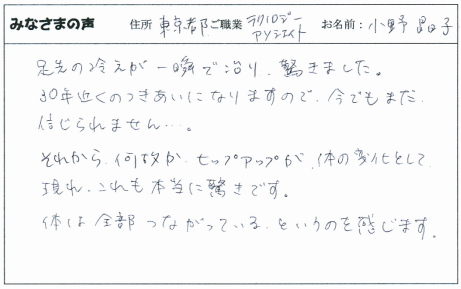 みなさまの声 住所 東京都 ご職業 ラクノロジー アソシエイト お名前: 小野 晶子
足先の冷えが一瞬で治り、驚きました。
30年近くのつきあいになりますので、今でもまだ、
信じられません…。
それから、何故か、ヒップアップが、体の変化として
現れ、これも本当に驚きです。
体は全部つながっている、というのを感じます。